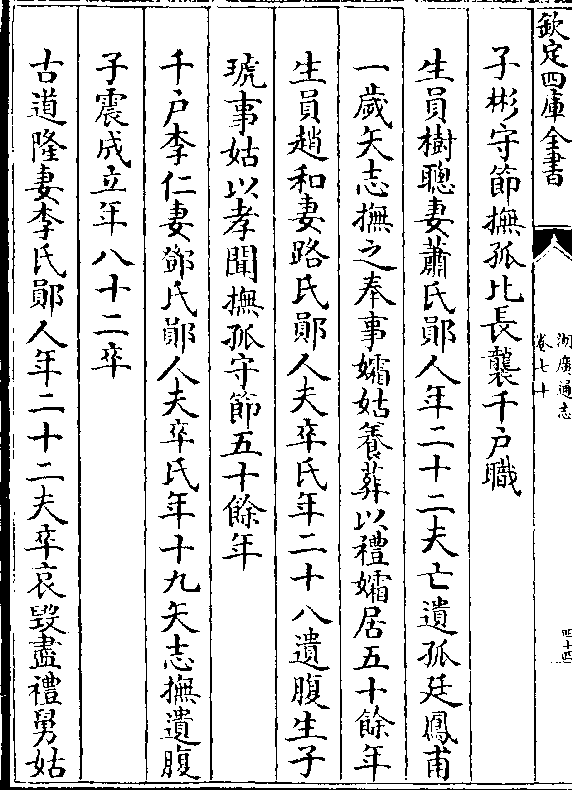 欽定四庫全書
湖廣通志
卷七十
四十四
子彬守節撫孤比長襲千户職
生員樹聰妻蕭氏鄖人年二十二夫亡遺孤廷鳳甫
一歲矢志撫之奉事孀姑養葬以禮孀居五十餘年
生員趙和妻路氏鄖人夫卒氏年二十八遺腹生子
琥事姑以孝聞撫孤守節五十餘年
千户李仁妻鄧氏鄖人夫卒氏年十九矢志撫遺腹
子震成立年八十二卒
古道隆妻李氏鄖人年二十二夫卒哀毀盡禮舅姑